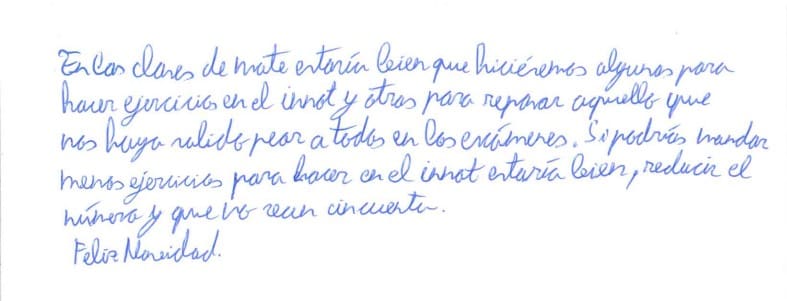 En las clases de mate estaría bien que hiciéremos algunas para
hacer ejercicios en el innot y otras para repasar aquello que
nos haya salido peor a todos en los exámenes. Si podrías mandar
menos ejercicios para hacer en el innot estaría bien, reducir el
número y que no sean cincuenta.
Feliz Navidad.